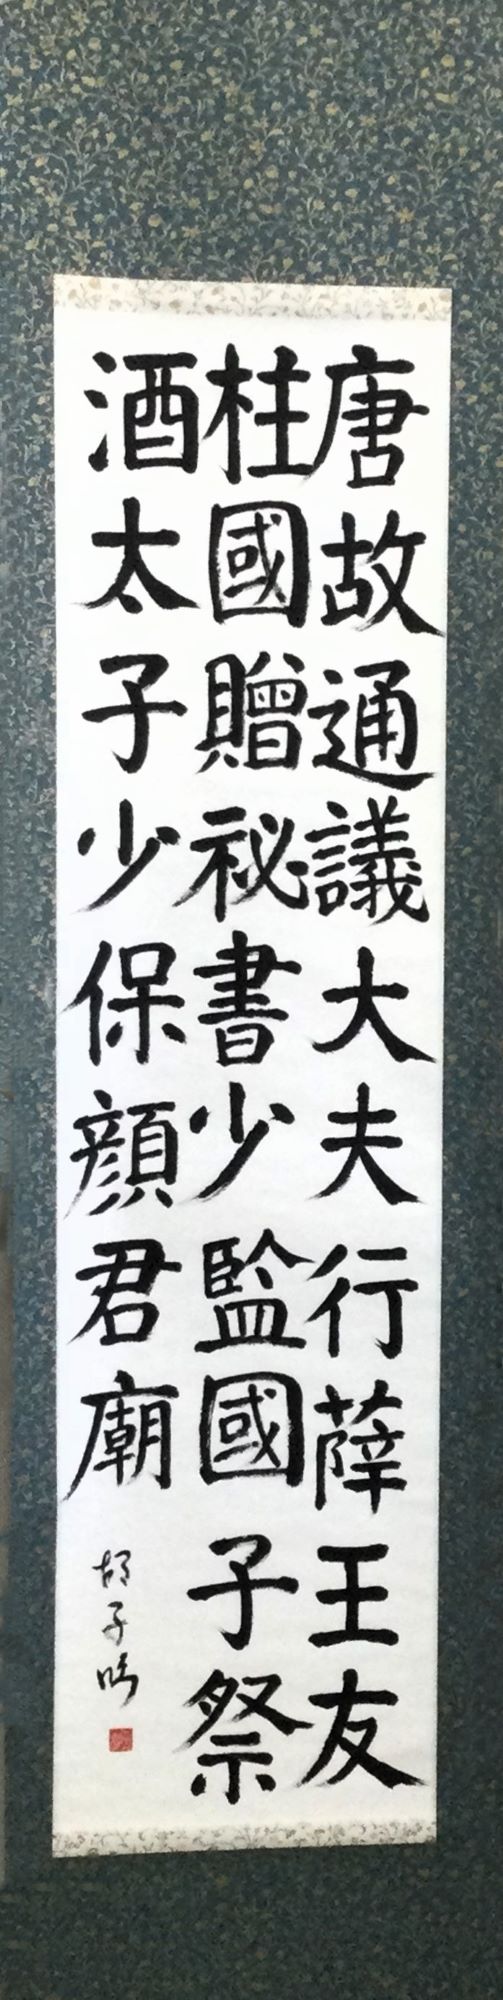 唐故通議大夫行薛王友
柱國贈祕書少監國子祭
酒太子少保顔君廟
胡子